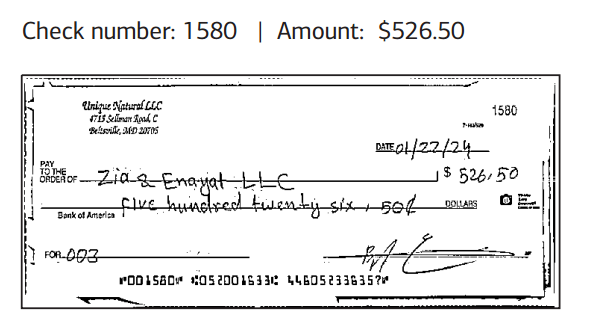 Check number: 1580 | Amount: $526.50
Unique Natural LLC
4713 Sellman Road, C
Beltsville, MD 20705
1580
DATE 01/22/24
PAY TO THE ORDER OF Zia & Enayat LLC $ 526.50
five hundred twenty six, 50¢ DOLLARS
Bank of America
FOR 003
⑈001580⑈ ⑆052001633⑆ 446052336357⑈